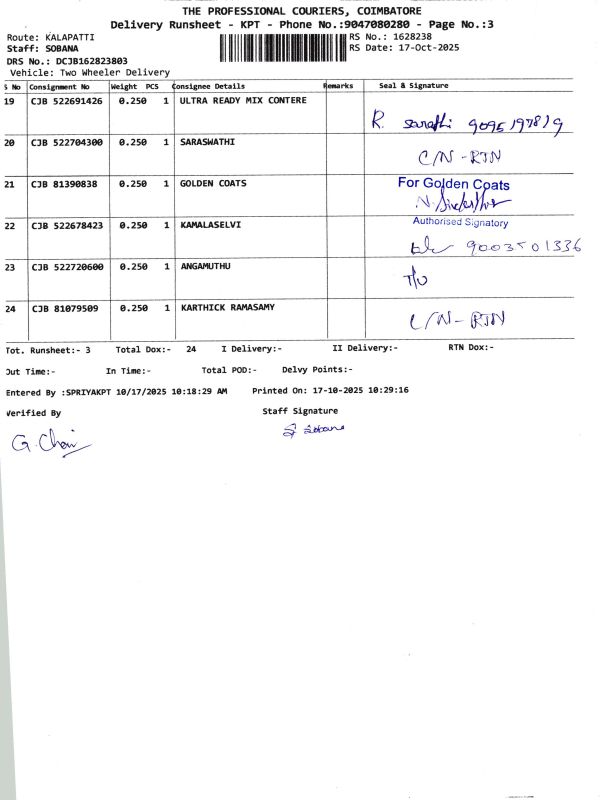 THE PROFESSIONAL COURIERS, COIMBATORE
Delivery Runsheet - KPT - Phone No.:9047080280 - Page No.:3
Route: KALAPATTI RS No.: 1628238
Staff: SOBANA RS Date: 17-Oct-2025
DRS No.: DCJB162823803
Vehicle: Two Wheeler Delivery
S No Consignment No Weight PCS Consignee Details Remarks Seal & Signature
19 CJB 522691426 0.250 1 ULTRA READY MIX CONTERE
R. Sarathi
20 CJB 522704300 0.250 1 SARASWATHI
C/N - RTN
21 CJB 81390838 0.250 1 GOLDEN COATS For Golden Coats
22 CJB 522678423 0.250 1 KAMALASELVI Authorised Signatory
9003501336
23 CJB 522720600 0.250 1 ANGAMUTHU
24 CJB 81079509 0.250 1 KARTHICK RAMASAMY
C/N - RTN
Tot. Runsheet:- 3 Total Dox:- 24 I Delivery:- II Delivery:- RTN Dox:-
Out Time:- In Time:- Total POD:- Delvy Points:-
Entered By :SPRIYAKPT 10/17/2025 10:18:29 AM Printed On: 17-10-2025 10:29:16
Verified By Staff Signature
Sobana